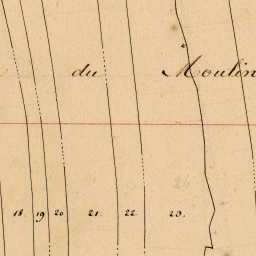 du Moulin
18. 19 20 21. 22. 23.